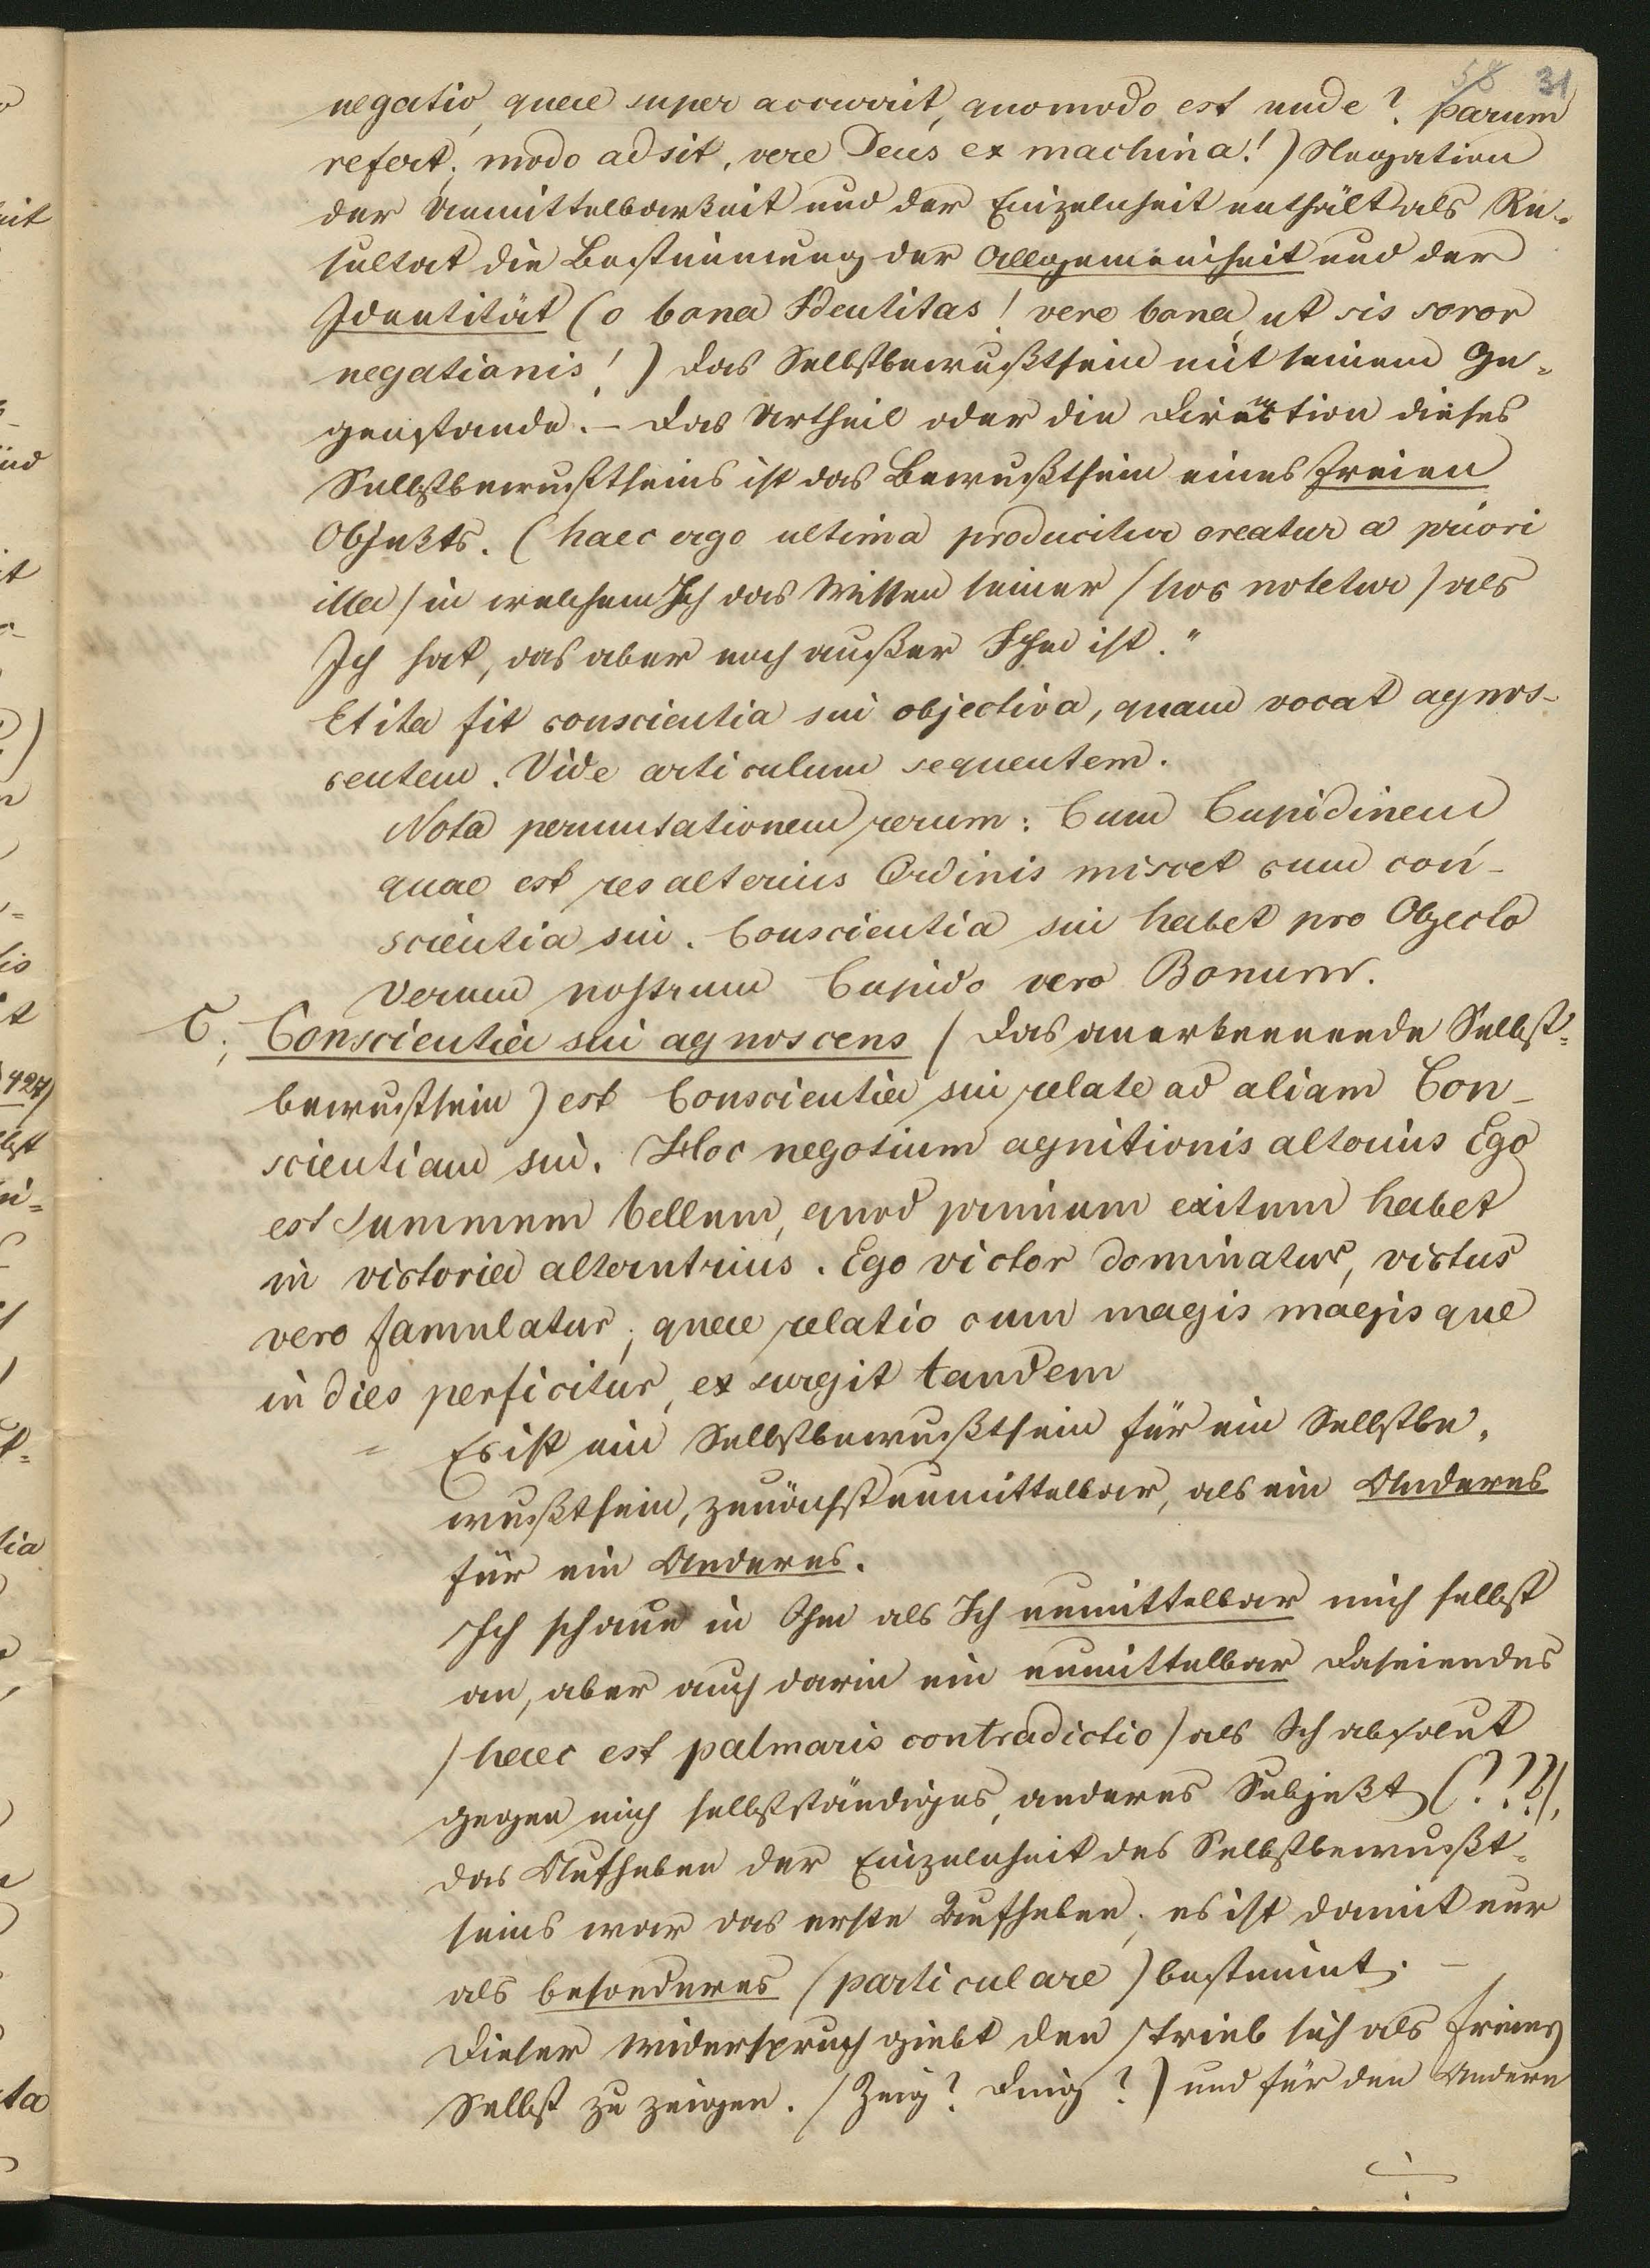 58 31
negatio, quae super accurrit, quomodo est unde? parum
refert; modo adsit, vere Deus ex machina!) Negation
der Unmittelbarkeit und der Einzelnheit enthält als Re-
sultat die Bestimmung der Allgemeinheit und der
Identität (o bona Identitas! vere bona, ut sis soror
negationis!) das Selbstbewußtsein mit seinem Ge-
genstande. – Das Urtheil oder die Diremtion dieses
Selbstbewußtseins ist das Bewußtsein eines freien
Objekts. (haec ergo ultima producitur creatur a priori
illa) in welchem Ich das Wissen seiner (hoc notetur) als
Ich hat, das aber noch außer Ihm ist."
Et ita fit conscientia sui objectiva, quam vocat agnos-
centem. Vide articulum sequentem.
Nota permutationem rerum: Cum Cupidinem
quae est res alterius Ordinis miscet cum con-
scientia sui. Conscientia sui habet pro Objecto
Verum nostrum Cupido vero Bonum.
C; Conscientia sui agnoscens (das anerkennende Selbst-
bewußtsein) est Conscientia sui relate ad aliam Con-
scientiam sui. Hoc negotium agnitionis alterius Ego
est summum bellum, quod primum exitum habet
in victoria alterutrius. Ego victor dominatur, victus
vero famulatur; quae relatio cum magis magisque
in dies perficitur, exsurgit tandem
" Es ist ein Selbstbewußtsein für ein Selbstbe-
wußtsein, zunächst unmittelbar, als ein Anderes
für ein Anderes.
Ich schaue in Ihm als Ich unmittelbar mich selbst
an, aber auch darin ein unmittelbar Daseiendes
(haec est palmaris contradictio) als Ich absolut
gegen mich selbstständiges, anderes Subjekt (???),
das Aufheben der Einzelnheit des Selbstbewußt-
seins war das erste Aufheben; es ist damit nur
als besonderes (particulare) bestimmt. –
Dieser Widerspruch giebt den Trieb sich als freies
Selbst zu zeigen. (Zeug? Ding?) und für den Andern